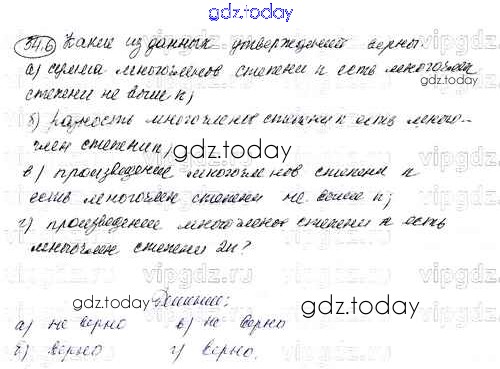 gdz.today
34.6 Какие из данных утверждений верны:
а) сумма многочленов степени n есть многочлен
gdz.today
степени не выше n;
б) разность многочленов степени n есть много-
член степени n;
gdz.today
в) произведение многочленов степени n
есть многочлен степени не выше n;
г) произведение многочленов степени n есть
многочлен степени 2n?
Решение:
gdz.today
gdz.today
а) не верно в) не верно
б) верно г) верно.
gdz.today
vipgdz
vipgdz
vipgdz